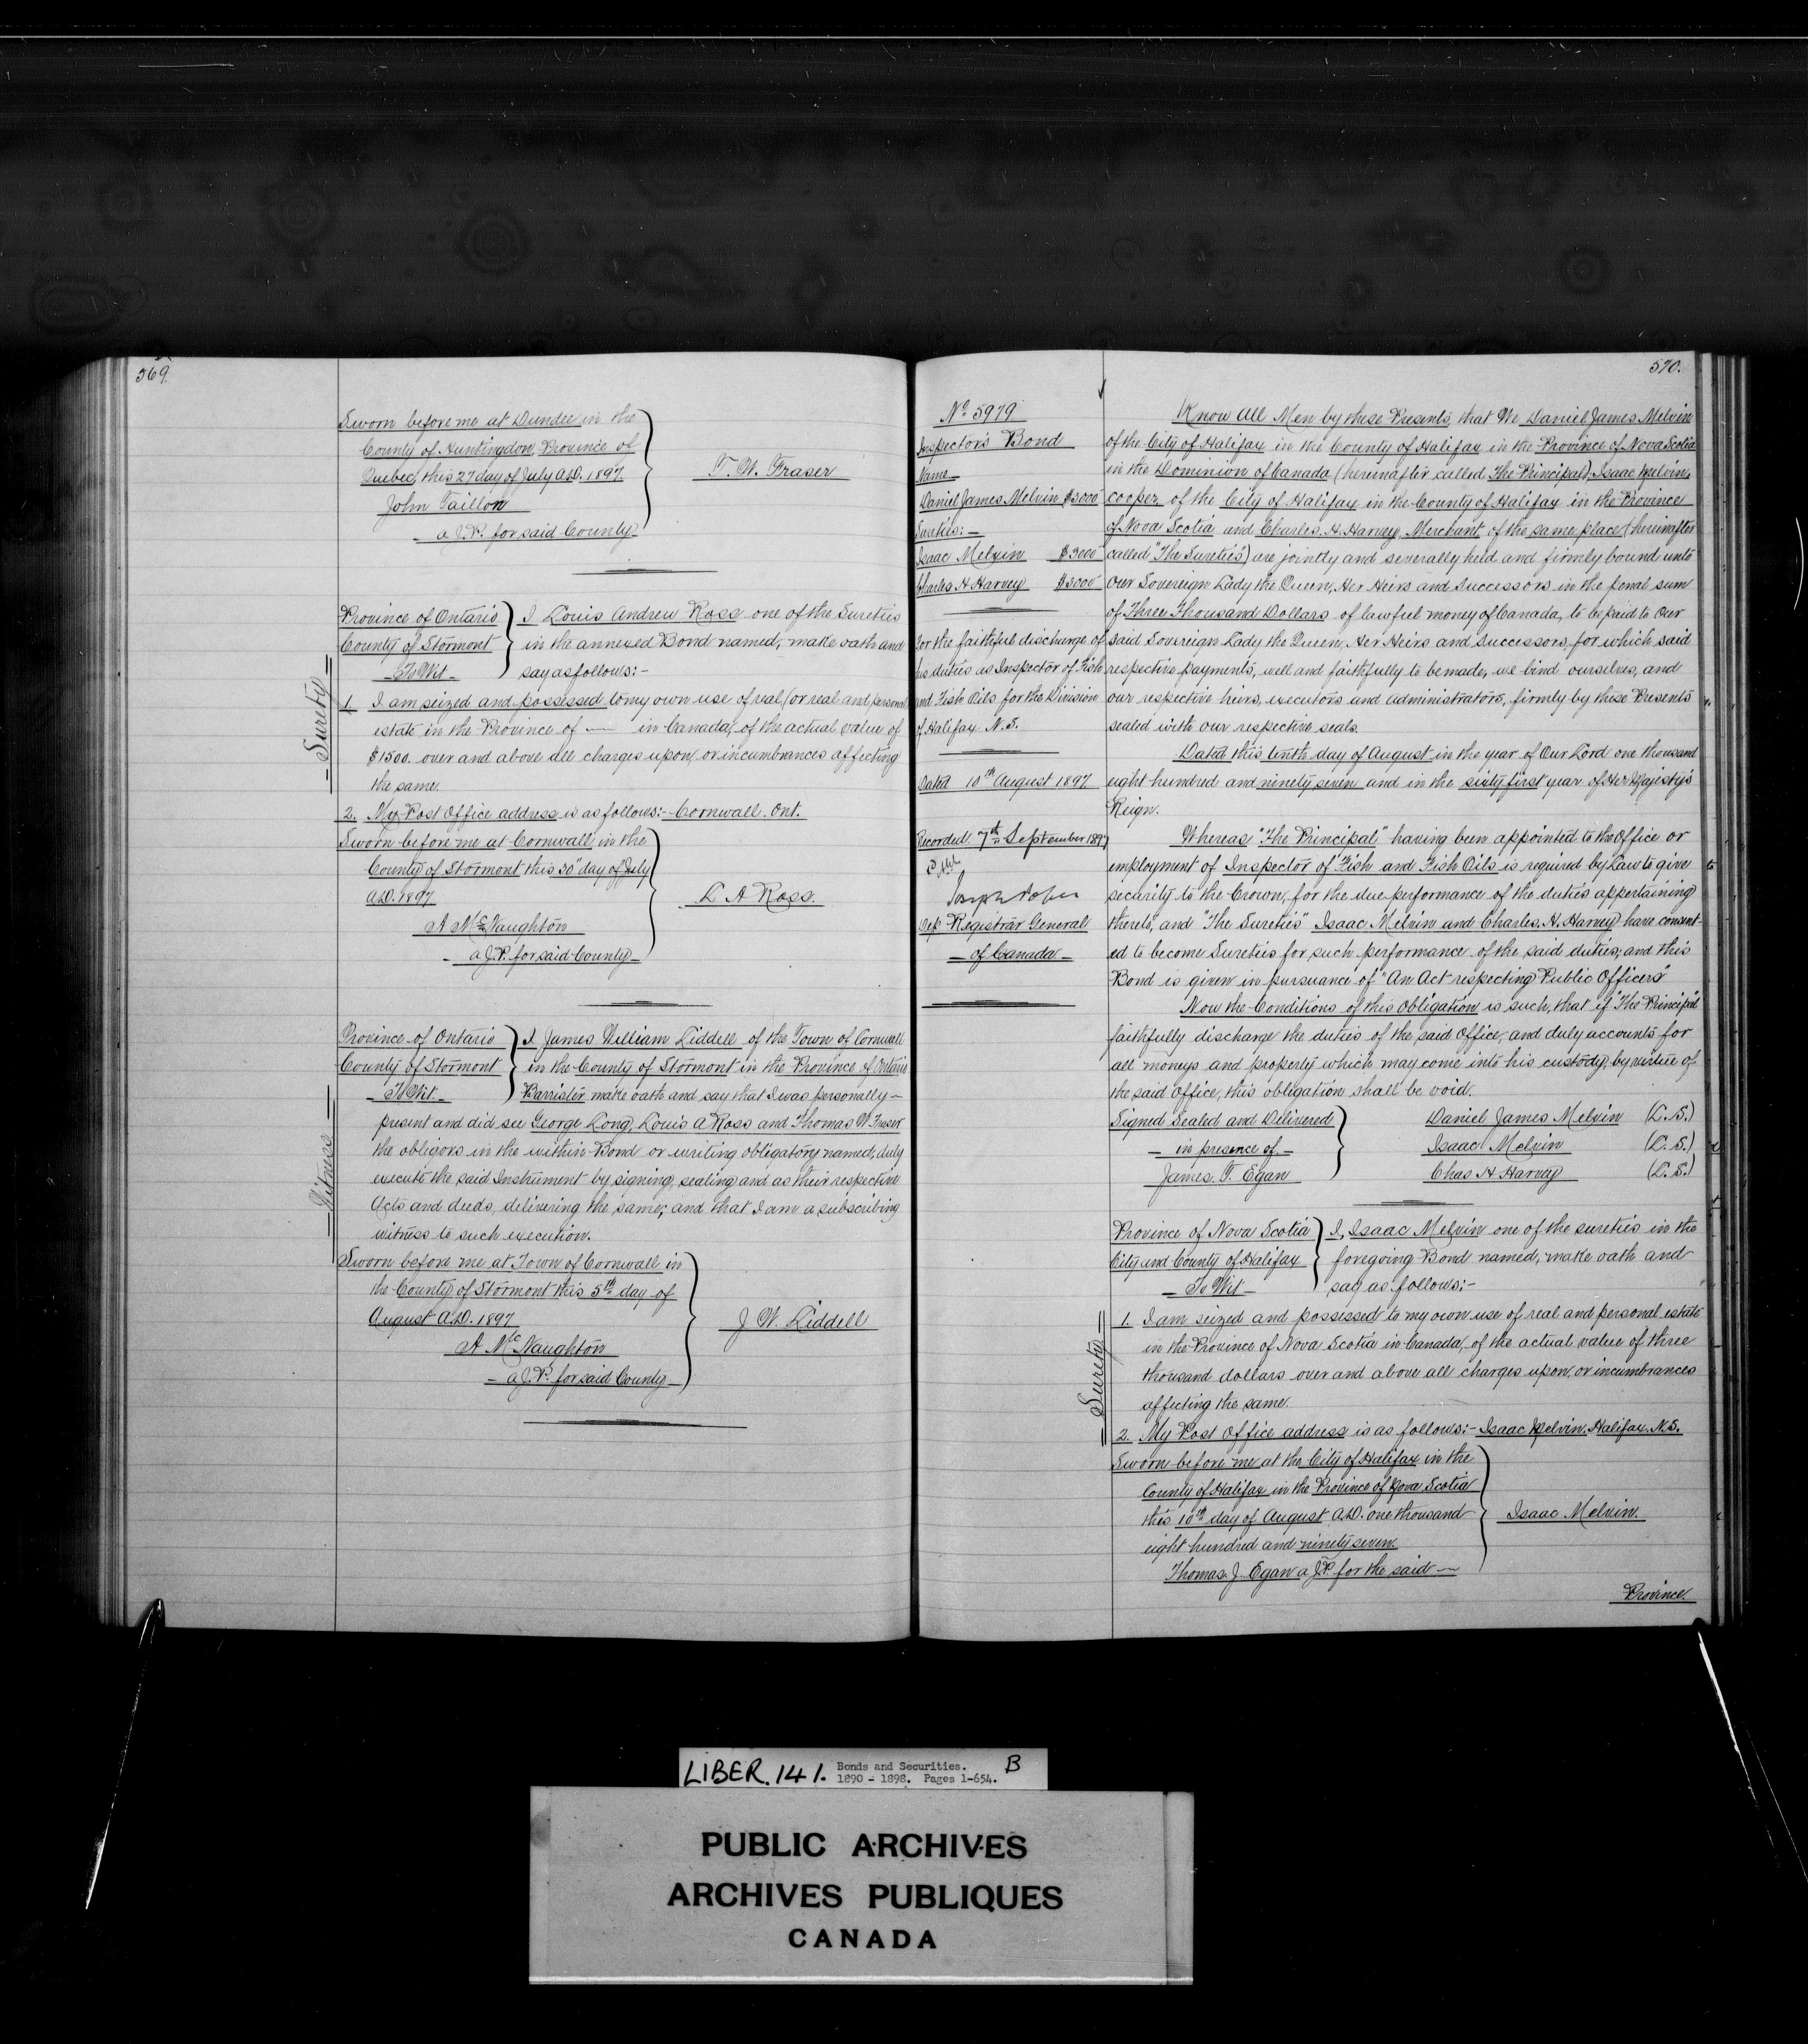 569.
Sworn before me at Dundee in the
County of Huntingdon Province of
Quebec, this 27 day of July A.D. 1897.
John Taillon
a J.P. for said County
T. W. Fraser
Province of Ontario
County of Stormont
To Wit
I Louis Andrew Ross one of the Sureties
in the annexed Bond named, make oath and
say as follows:-
Surety
1. I am seized and possessed to my own use of real (or real and personal
estate in the Province of — in Canada, of the actual value of
$1500. over and above all charges upon, or incumbrances affecting
the same.
2. My Post Office address is as follows:- Cornwall. Ont.
Sworn before me at Cornwall in the
County of Stormont this 30" day of July
A.D. 1897
A McNaughton
a J.P. for said County
L A Ross.
Province of Ontario
County of Stormont
To Wit
I James William Liddell of the Town of Cornwall
in the County of Stormont in the Province of Ontario
Barrister make oath and say that I was personally
Witness
present and did see George Long, Louis A Ross and Thomas W Fraser
the obligors in the within Bond or writing obligatory named, duly
execute the said Instrument by signing, sealing and as their respective
Acts and deeds, delivering the same; and that I am a subscribing
witness to such execution.
Sworn before me at Town of Cornwall in
the County of Stormont this 5th day of
August A.D. 1897
A McNaughton
a J.P. for said County
J W. Liddell
570.
No 5979
Inspector's Bond
Name
Daniel James Melvin $3000
Sureties:-
Isaac Melvin $3000
Charles H Harvey $3000
For the faithful discharge of
his duties as Inspector of Fish
and Fish Oils for the Division
of Halifax N.S.
Dated 10th August 1897
Recorded 7th September 1897
Joseph Pope
Dep Registrar General
of Canada
Know All Men by these Presents, that We Daniel James Melvin
of the City of Halifax in the County of Halifax in the Province of Nova Scotia
in the Dominion of Canada (hereinafter called "The Principal"), Isaac Melvin,
cooper of the City of Halifax in the County of Halifax in the Province
of Nova Scotia and Charles. H. Harvey, Merchant of the same place (hereinafter
called "The Sureties") are jointly and severally held and firmly bound unto
our Sovereign Lady the Queen, Her Heirs and Successors in the penal sum
of Three Thousand Dollars of lawful money of Canada, to be paid to Our
said Sovereign Lady the Queen, Her Heirs and Successors, for which said
respective payments, well and faithfully to be made, we bind ourselves, and
our respective heirs, executors and administrators, firmly by these Presents
sealed with our respective seals.
Dated this tenth day of August in the year of Our Lord one thousand
eight hundred and ninety seven and in the sixty first year of Her Majesty's
Reign.
Whereas "The Principal" having been appointed to the Office or
employment of Inspector of Fish and Fish Oils is required by Law to give
security to the Crown, for the due performance of the duties appertaining
thereto, and "The Sureties" Isaac Melvin and Charles. H. Harvey have consent-
ed to become Sureties for such performance of the said duties; and this
Bond is given in pursuance of "An Act respecting Public Officers"
Now the Conditions of this Obligation is such, that if "The Principal"
faithfully discharge the duties of the said Office, and duly accounts for
all moneys and property which may come into his custody, by virtue of
the said office, this obligation shall be void.
Signed Sealed and Delivered
in presence of
James. T. Egan
Daniel James Melvin (L.S.)
Isaac Melvin (L.S.)
Chas H Harvey (L.S.)
Province of Nova Scotia
City and County of Halifax
To Wit
I, Isaac Melvin one of the sureties in the
foregoing Bond named, make oath and
say as follows:-
Surety
1. I am seized and possessed to my own use of real and personal estate
in the Province of Nova Scotia in Canada, of the actual value of three
thousand dollars over and above all charges upon, or incumbrances
affecting the same.
2. My Post Office address is as follows:- Isaac Melvin. Halifax. N.S.
Sworn before me at the City of Halifax in the
County of Halifax in the Province of Nova Scotia
this 10th day of August A.D. one thousand
eight hundred and ninety seven.
Thomas. J. Egan a J.P. for the said
Isaac Melvin.
Province.
LIBER. 141. Bonds and Securities. B
1890 - 1898. Pages 1-654.
PUBLIC ARCHIVES
ARCHIVES PUBLIQUES
CANADA